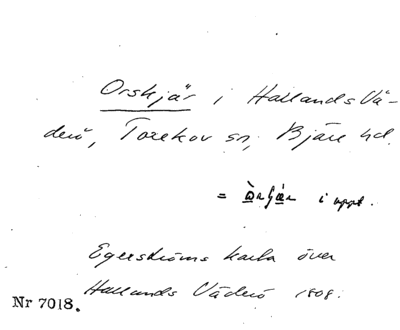 Orskjär i Hallands Vä-
derö, Torekov sn, Bjäre hd.
= i uppt.
Egerströms karta över
Hallands Väderö 1808.
Nr 7018.